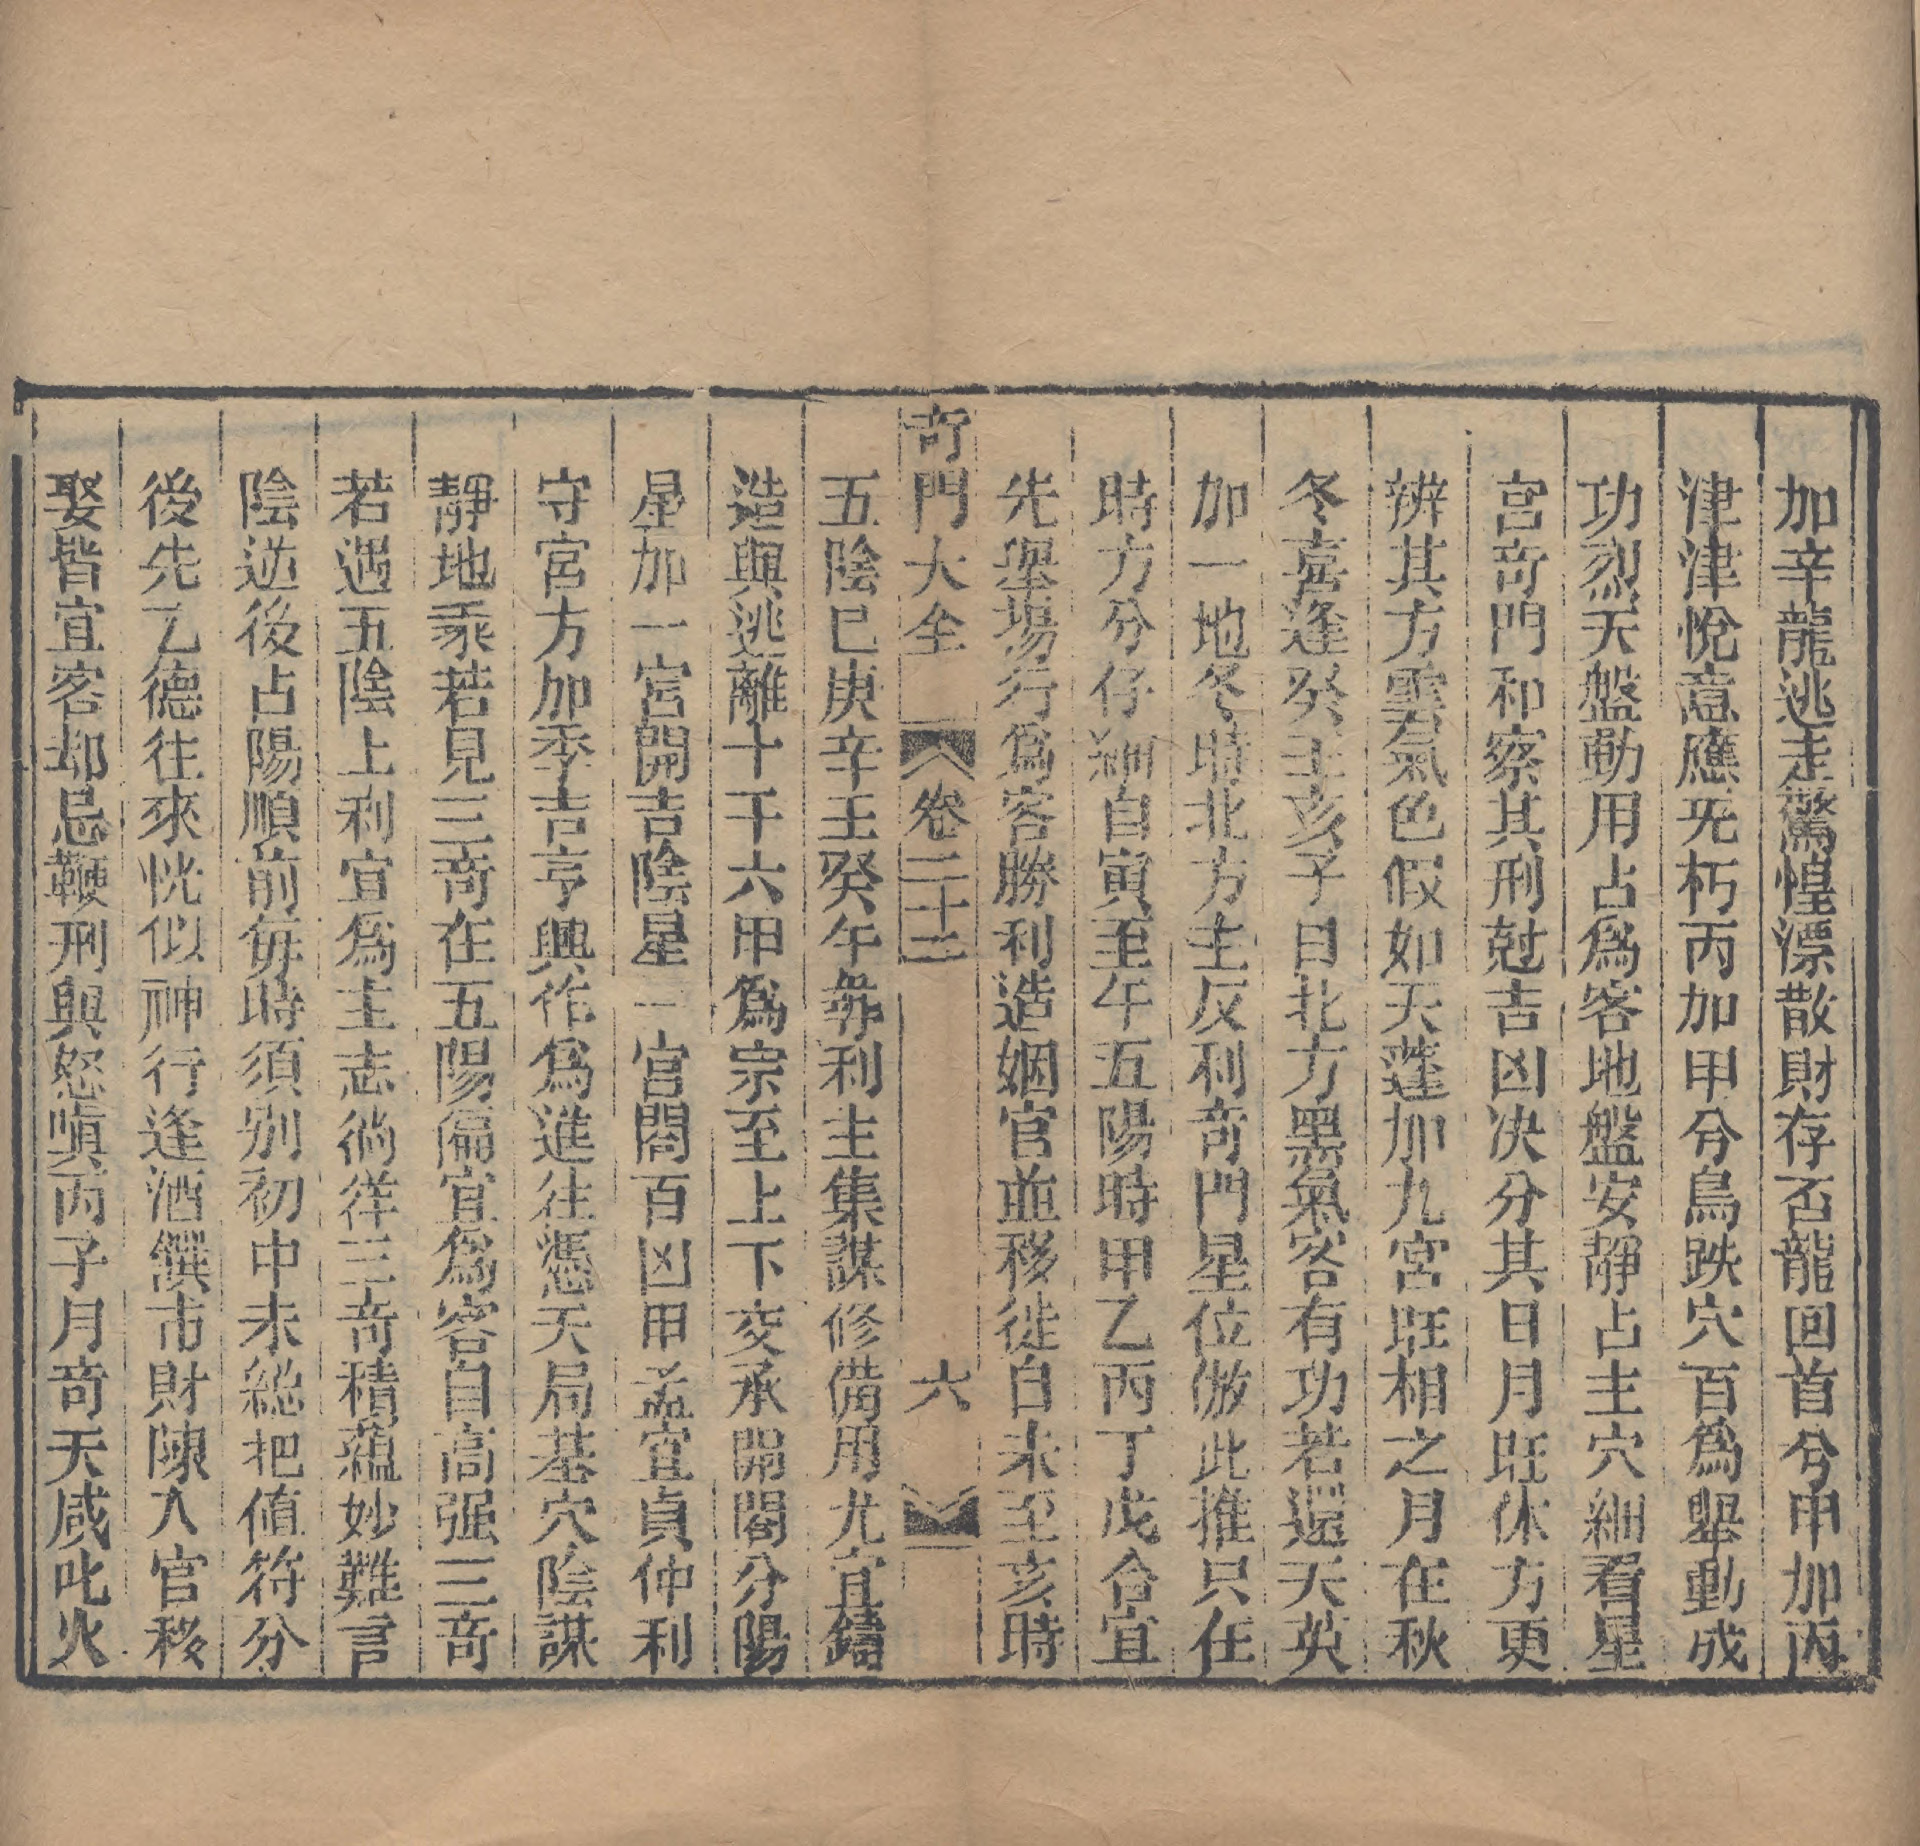 加辛龍逃走驚惶漂散財存否龍回首兮甲加丙
津津悅意應旡朽丙加甲兮鳥跌穴百為舉動成
功烈天盤動用占為客地盤安靜占主穴細看星
宮奇門和察其刑尅吉凶决分其日月旺休方更
辨其方雲氣色假如天蓬加九宮旺相之月在秋
冬喜逢癸壬亥子日北方黑氣客有功若還天英
加一地冬時北方主反利奇門星位倣此推只在
時方分仔細自寅至午五陽時甲乙丙丁戊合宜
先舉場行為客勝利造姻官並移徙自未至亥時
奇門大全 卷二十二 六
五陰巳庚辛壬癸午彝利主集謀修備用尤宜鑄
造與逃離十干六甲為宗至上下交承開闔分陽
星加一宮開吉陰星一宮闔百凶甲孟宜貞仲利
守宮方加季吉亨興作為進往憑天局基穴陰謀
靜地乘若見三奇在五陽偏宜為客自高强三奇
若遇五陰上利宜為主志徜徉三奇積蘊妙難言
陰逆後占陽順前每時須别初中末總把値符分
後先乙德往來恍似神行逢酒饌市財陳入官移
娶皆宜客却忌鞭刑與怒嗔丙子月奇天威叱火